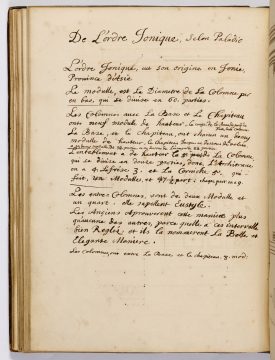 De L'ordre Jonique, Selon Paladio
L'ordre Jonique, eut son origine en Jonie,
Province d'Asie
Le modulle, est Le Diametre de La Colonne par
en bas, qui se divise en 60. parties.
Les Colonnes avec La Base et Le Chapiteau
ont neuf module de hauteur,
La Base, et le Chapiteau, ont chacun un demy
modulle de hauteur,
L'entablement a de hauteur la 5e partie de La Colonne,
qui se divise en douze parties, dont L'Architrave,
en a 4. La frise, 3. et La Corniche 5. qui
fait, un Modulle, et 47 ½ part.
Les entre Colonnes, sont de deux Modulle et
un quart. elle sepellent Eustyle.
Les Anciens Aprouvoient cette maniere plus
qu'aucune des autres, parce quelle a ces intervalle
bien Reglez et ils la nommoient La Belle et
Elegante Maniere.
Les Colonnes, ont entre La Base et le chapiteau, 8. mod.